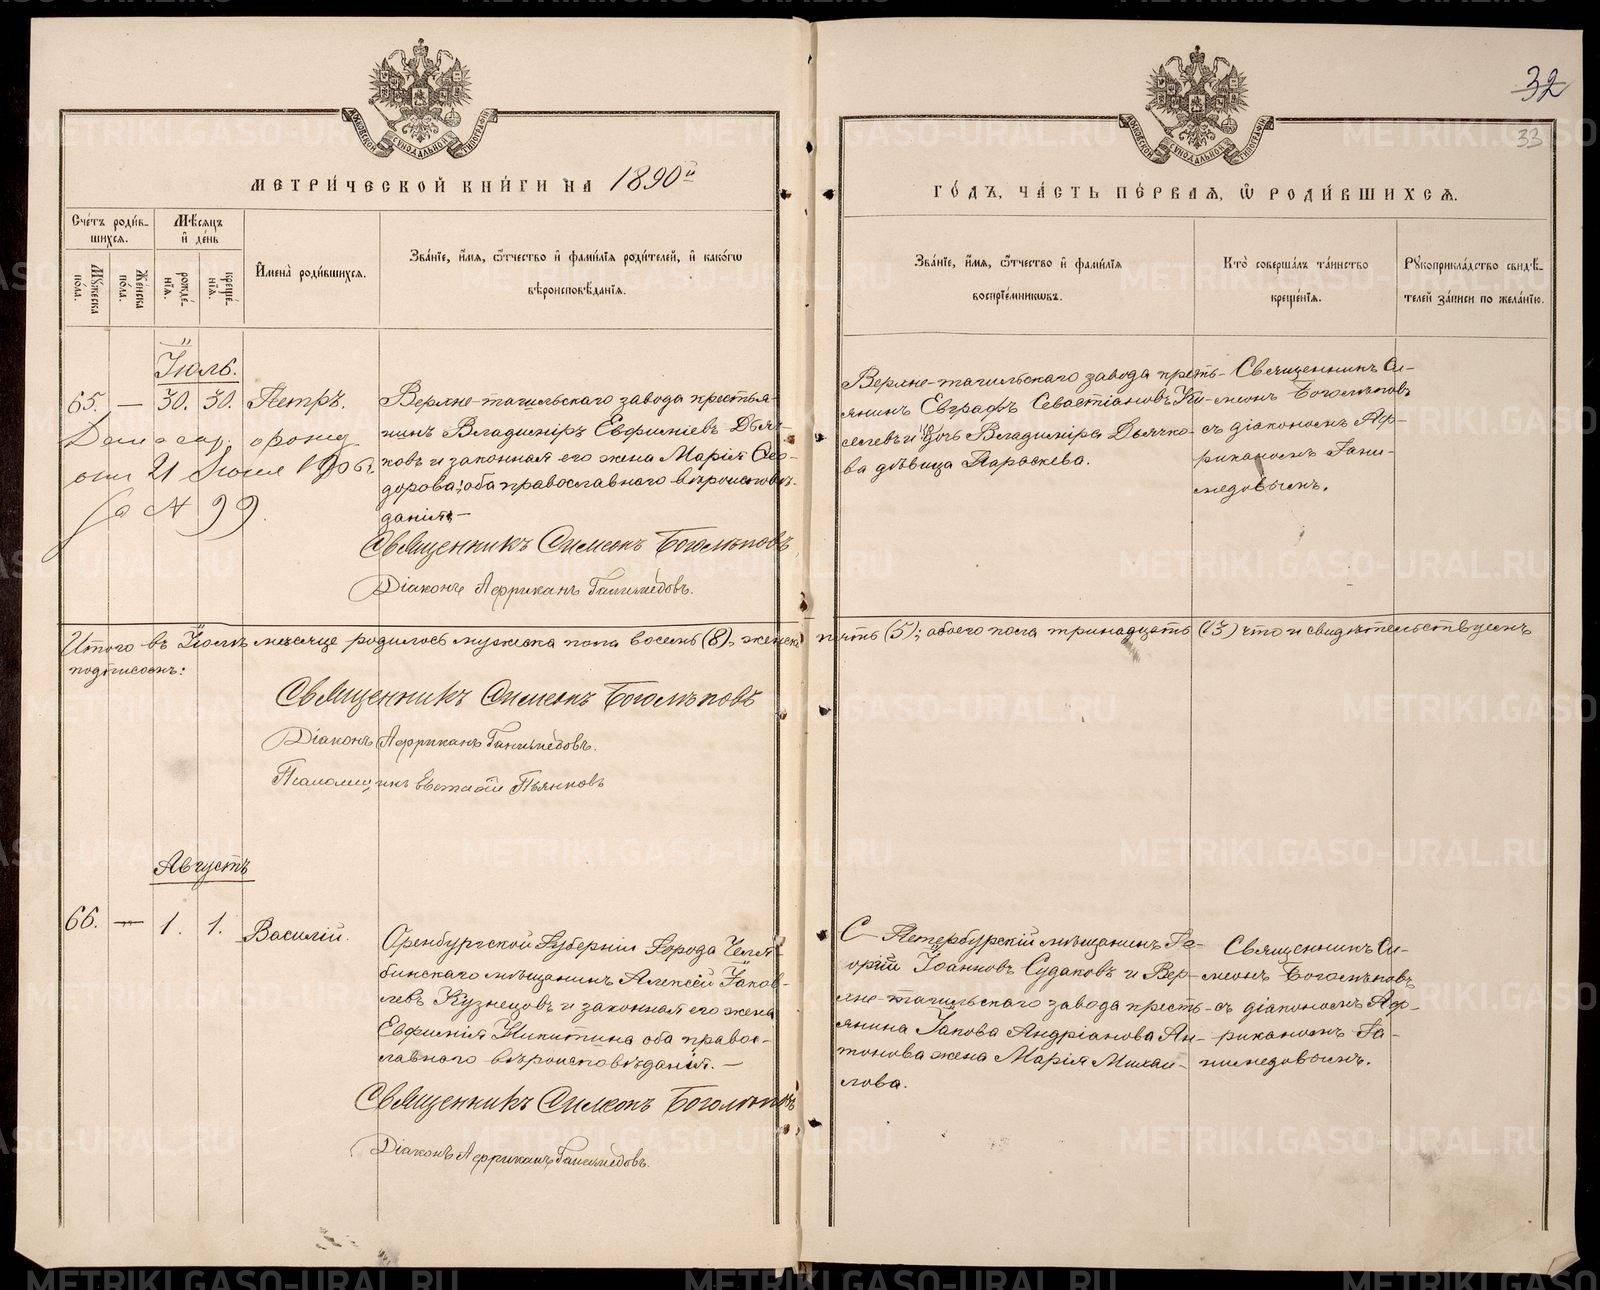 МОСКОВСКОЙ СѴНОДАЛЬНОЙ ТИПОГРАФІИ
МЕТРИ́ЧЕСКОЙ КНИ́ГИ НА 1890й
Сче́тъ роди́в-
шихся.
Мѣ́сяцъ
и҆ де́нь
Му́жеска
по́ла.
Же́нска
по́ла.
рожде́-
нїѧ.
креще́-
нїѧ.
И҆мена̀ роди́вшихся.
Зва́нїе, и҆́мѧ, ѻ҆́тчество и҆ фами́лїѧ роди́телей, и҆ како́гѡ
вѣроисповѣ́данїѧ.
Іюль.
65. — 30. 30. Петръ.
Верхне-тагильскаго завода крестья-
нинъ Владиміръ Евфиміевъ Дьяч-
ковъ и законная его жена Марія Ѳео-
дорова; оба православнаго вѣроисповѣ-
данія.—
21 Іюля 1906 г.
за № 99.
Священникъ Симеонъ Боголѣповъ
Діаконъ Африканъ Ганимедовъ.
Итого въ Іюлѣ мѣсяцѣ родилось мужеска пола восемь (8), женска
подписомъ:
Священникъ Симеонъ Боголѣповъ
Діаконъ Африканъ Ганимедовъ.
Псаломщикъ Пьянковъ
Августъ
66. — 1. 1. Василій.
Оренбургской Губерніи Города Челя-
бинскаго мѣщанинъ Алексѣй Іаков-
левъ Кузнецовъ и законная его жена
Евфимія Никитина оба правос-
лавнаго вѣроисповѣданія.—
Священникъ Симеонъ Боголѣповъ
Діаконъ Африканъ Ганимедовъ.
32
33
МОСКОВСКОЙ СѴНОДАЛЬНОЙ ТИПОГРАФІИ
ГО́ДЪ, ЧА́СТЬ ПЕ́РВАЯ, Ѡ҆ РОДИ́ВШИХСѦ.
Зва́нїе, и҆́мѧ, ѻ҆́тчество и҆ фами́лїѧ
воспрїе́мникѡвъ.
Кто̀ соверша́лъ та́инство
креще́нїѧ.
Рꙋкоприкла́дство свидѣ́-
телей за́писи по жела́нїю.
Верхне-тагильскаго завода кресть-
янинъ Евграфъ Севастіановъ Ки-
селевъ и дочь Владиміра Дьячко-
ва дѣвица Параскева.
Священникъ Си-
меонъ Боголѣповъ
съ діакономъ Аф-
риканомъ Гани-
медовымъ.
пять (5); обоего пола тринадцать (13) что и свидѣтельствуемъ
С-Петербурскій мѣщанинъ Ге-
оргій Іоанновъ Судаковъ и Вер-
хне-тагильскаго завода кресть-
янина Іакова Андріанова Ан-
тонова жена Марія Михаи-
лова.
Священникъ Си-
меонъ Боголѣповъ
съ діакономъ Аф-
риканомъ Га-
нимедовымъ.
METRIKI.GASO-URAL.RU